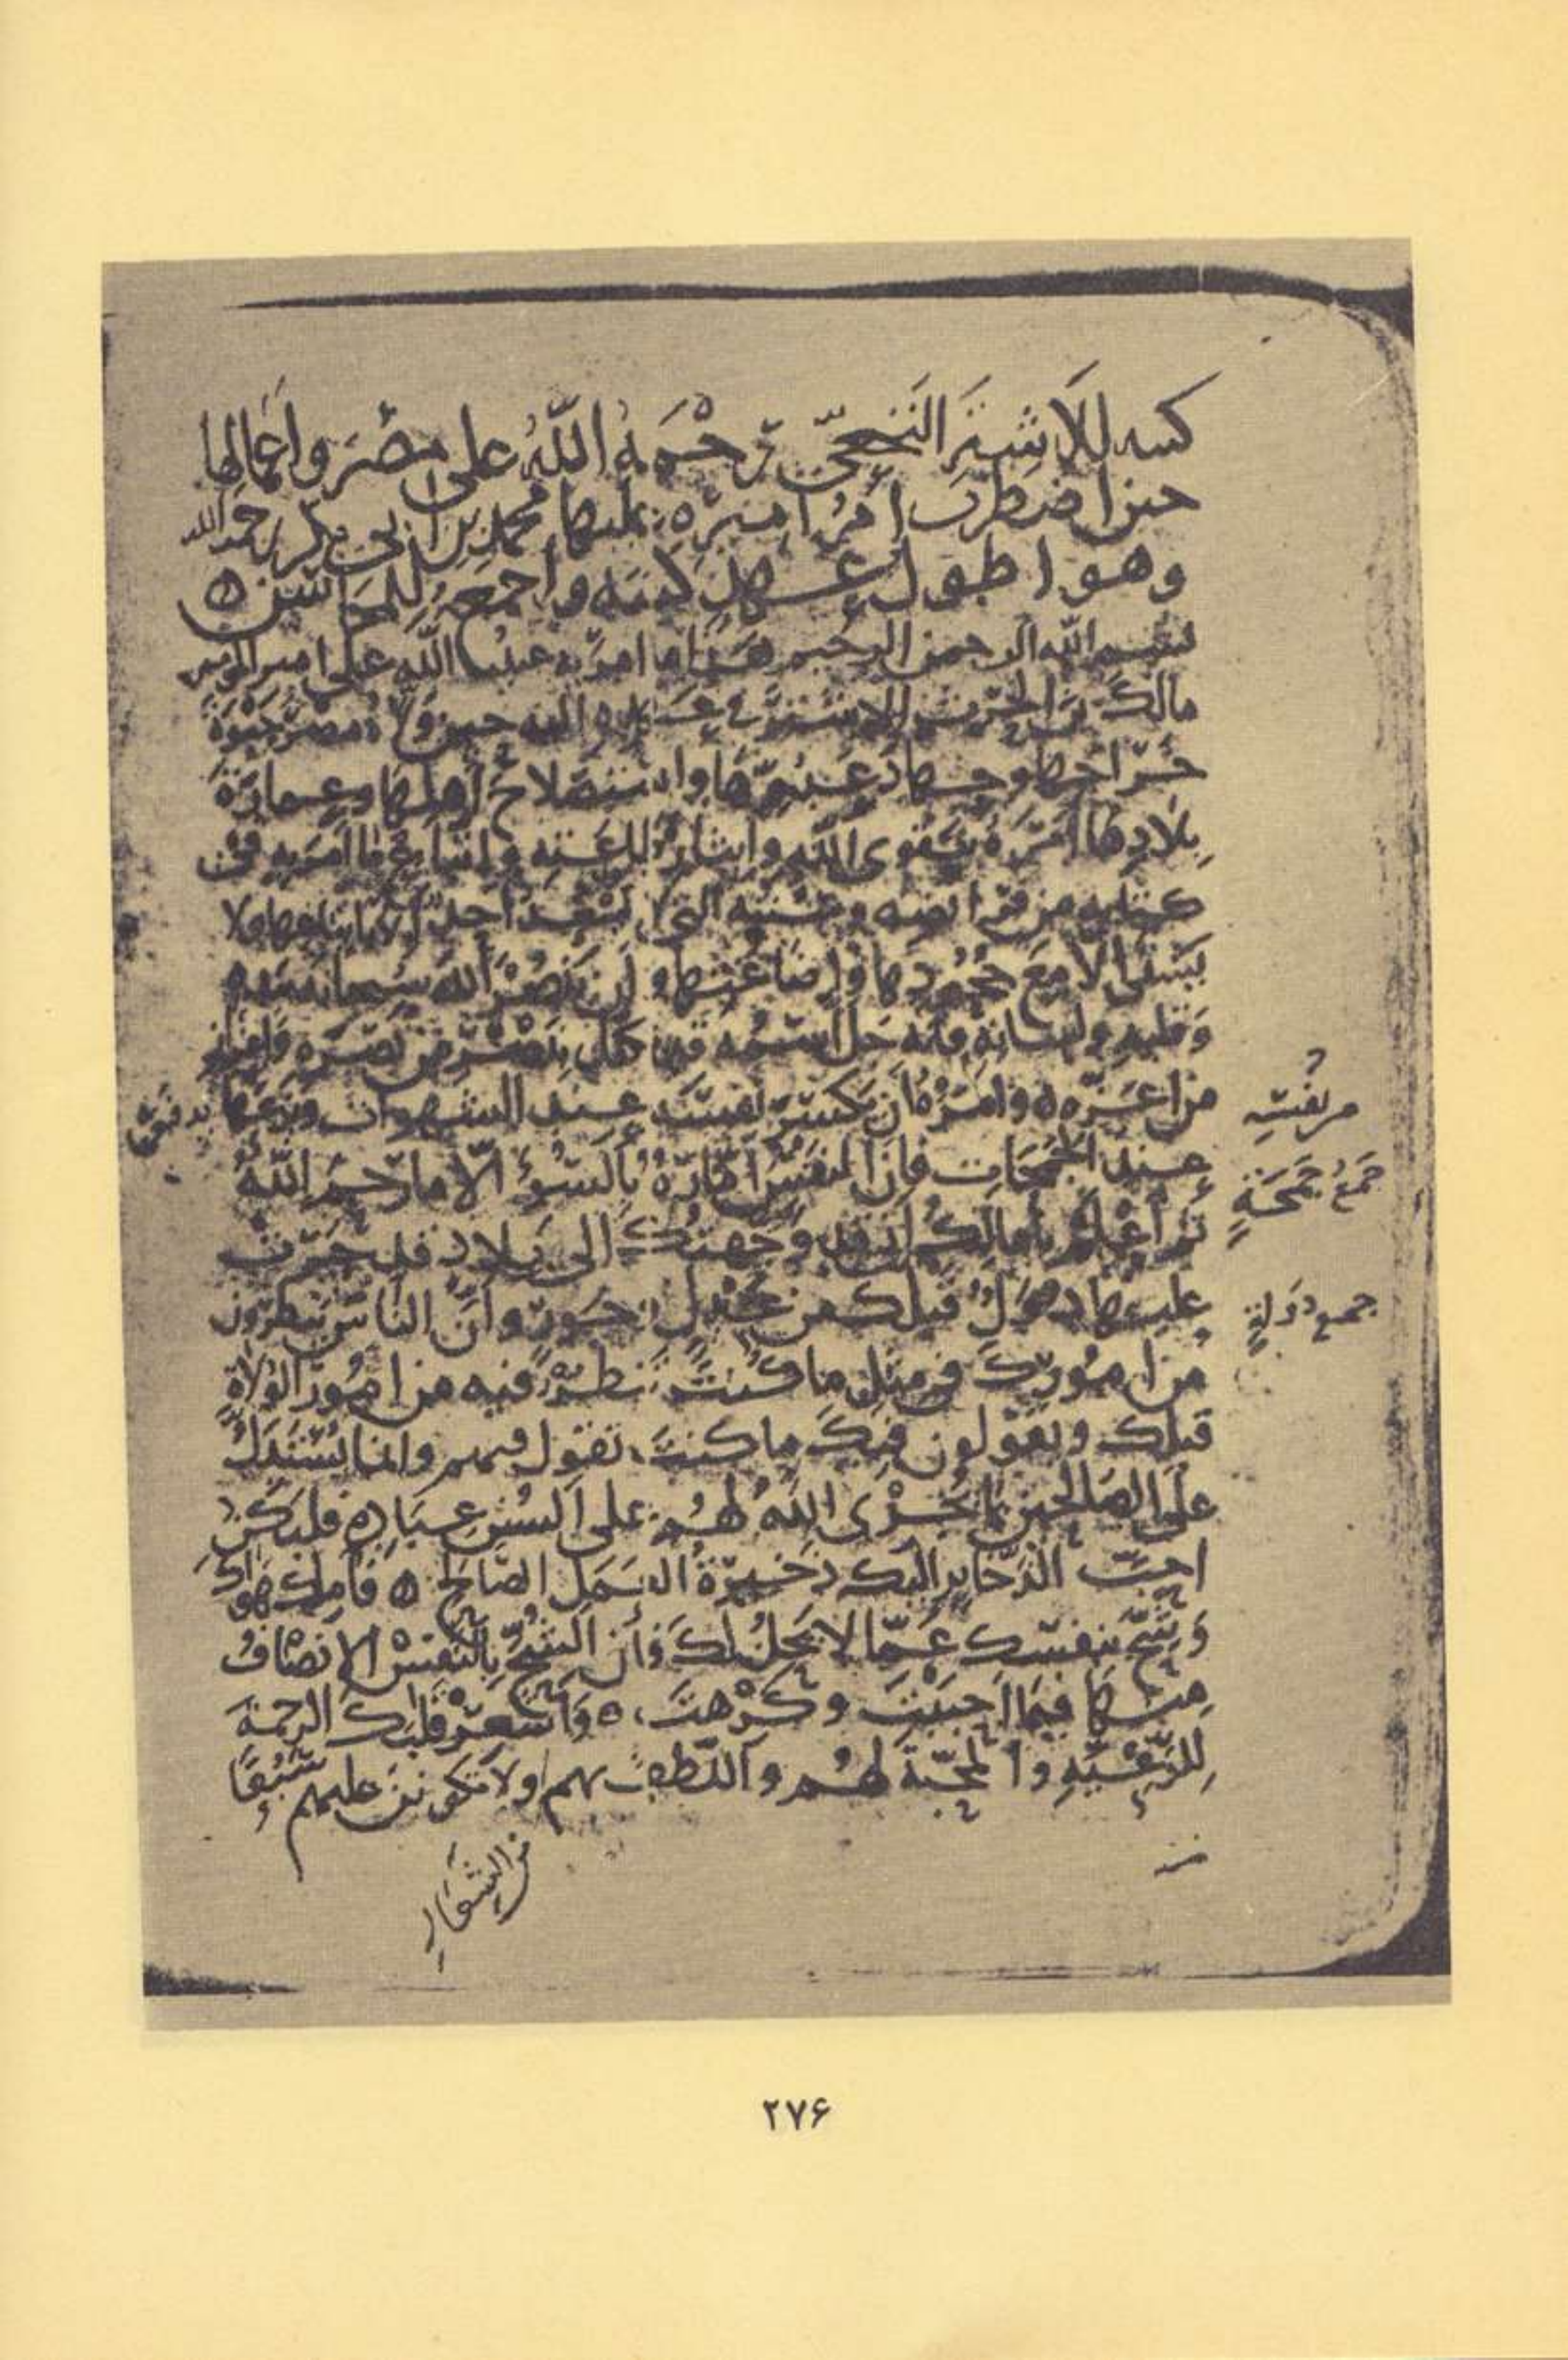 كتبه للاشتر النخعي رحمه الله على مصر واعمالها
حين اضطرب امر اميره عليها محمد بن ابي بكر رحمه الله
وهو اطول عهد كتبه واجمعه للمحاسن ه
بسم الله الرحمن الرحيم هذا ما امر به عبد الله علي امير المومنين
مالك بن الحرث الاشتر في عهده اليه حين ولاه مصر جبوة
خراجها وجهاد عدوها واستصلاح أهلها وعمارة
بلادها امره بتقوى الله وايثار طاعته واتباع ما امر به في
كتابه من فرائضه وسننه التي لا يسعد احد الا باتباعها ولا
يشقى الا مع جحودها واضاعتها وان ينصر الله سبحانه بيده
وقلبه ولسانه فانه جل اسمه قد تكفل بنصر من نصره واعزاز
من اعزه ه وامره ان يكسر نفسه عند الشهوات وينزعها
عند الجمحات فان النفس امارة بالسوء الا ما رحم الله
ثم أعلم يا مالك اني قد وجهتك الى بلاد قد جرت
عليها دول قبلك من عدل وجور وان الناس ينظرون
من امورك في مثل ما كنت تنظر فيه من امور الولاة
قبلك ويقولون فيك ما كنت تقول فيهم وانما يستدل
على الصالحين بما يجري الله لهم على السن عباده فليكن
احب الذخاير اليك ذخيرة العمل الصالح ه فاملك هواك
وشح بنفسك عما لا يحل لك فأن الشح بالنفس الانصاف
منها فيما احببت وكرهت ه وأشعر قلبك الرحمة
للرعية والمحبة لهم واللطف بهم ولا تكونن عليهم سبعا
من نفسه
جمع جمحة
جمع دولة
۲۷۶